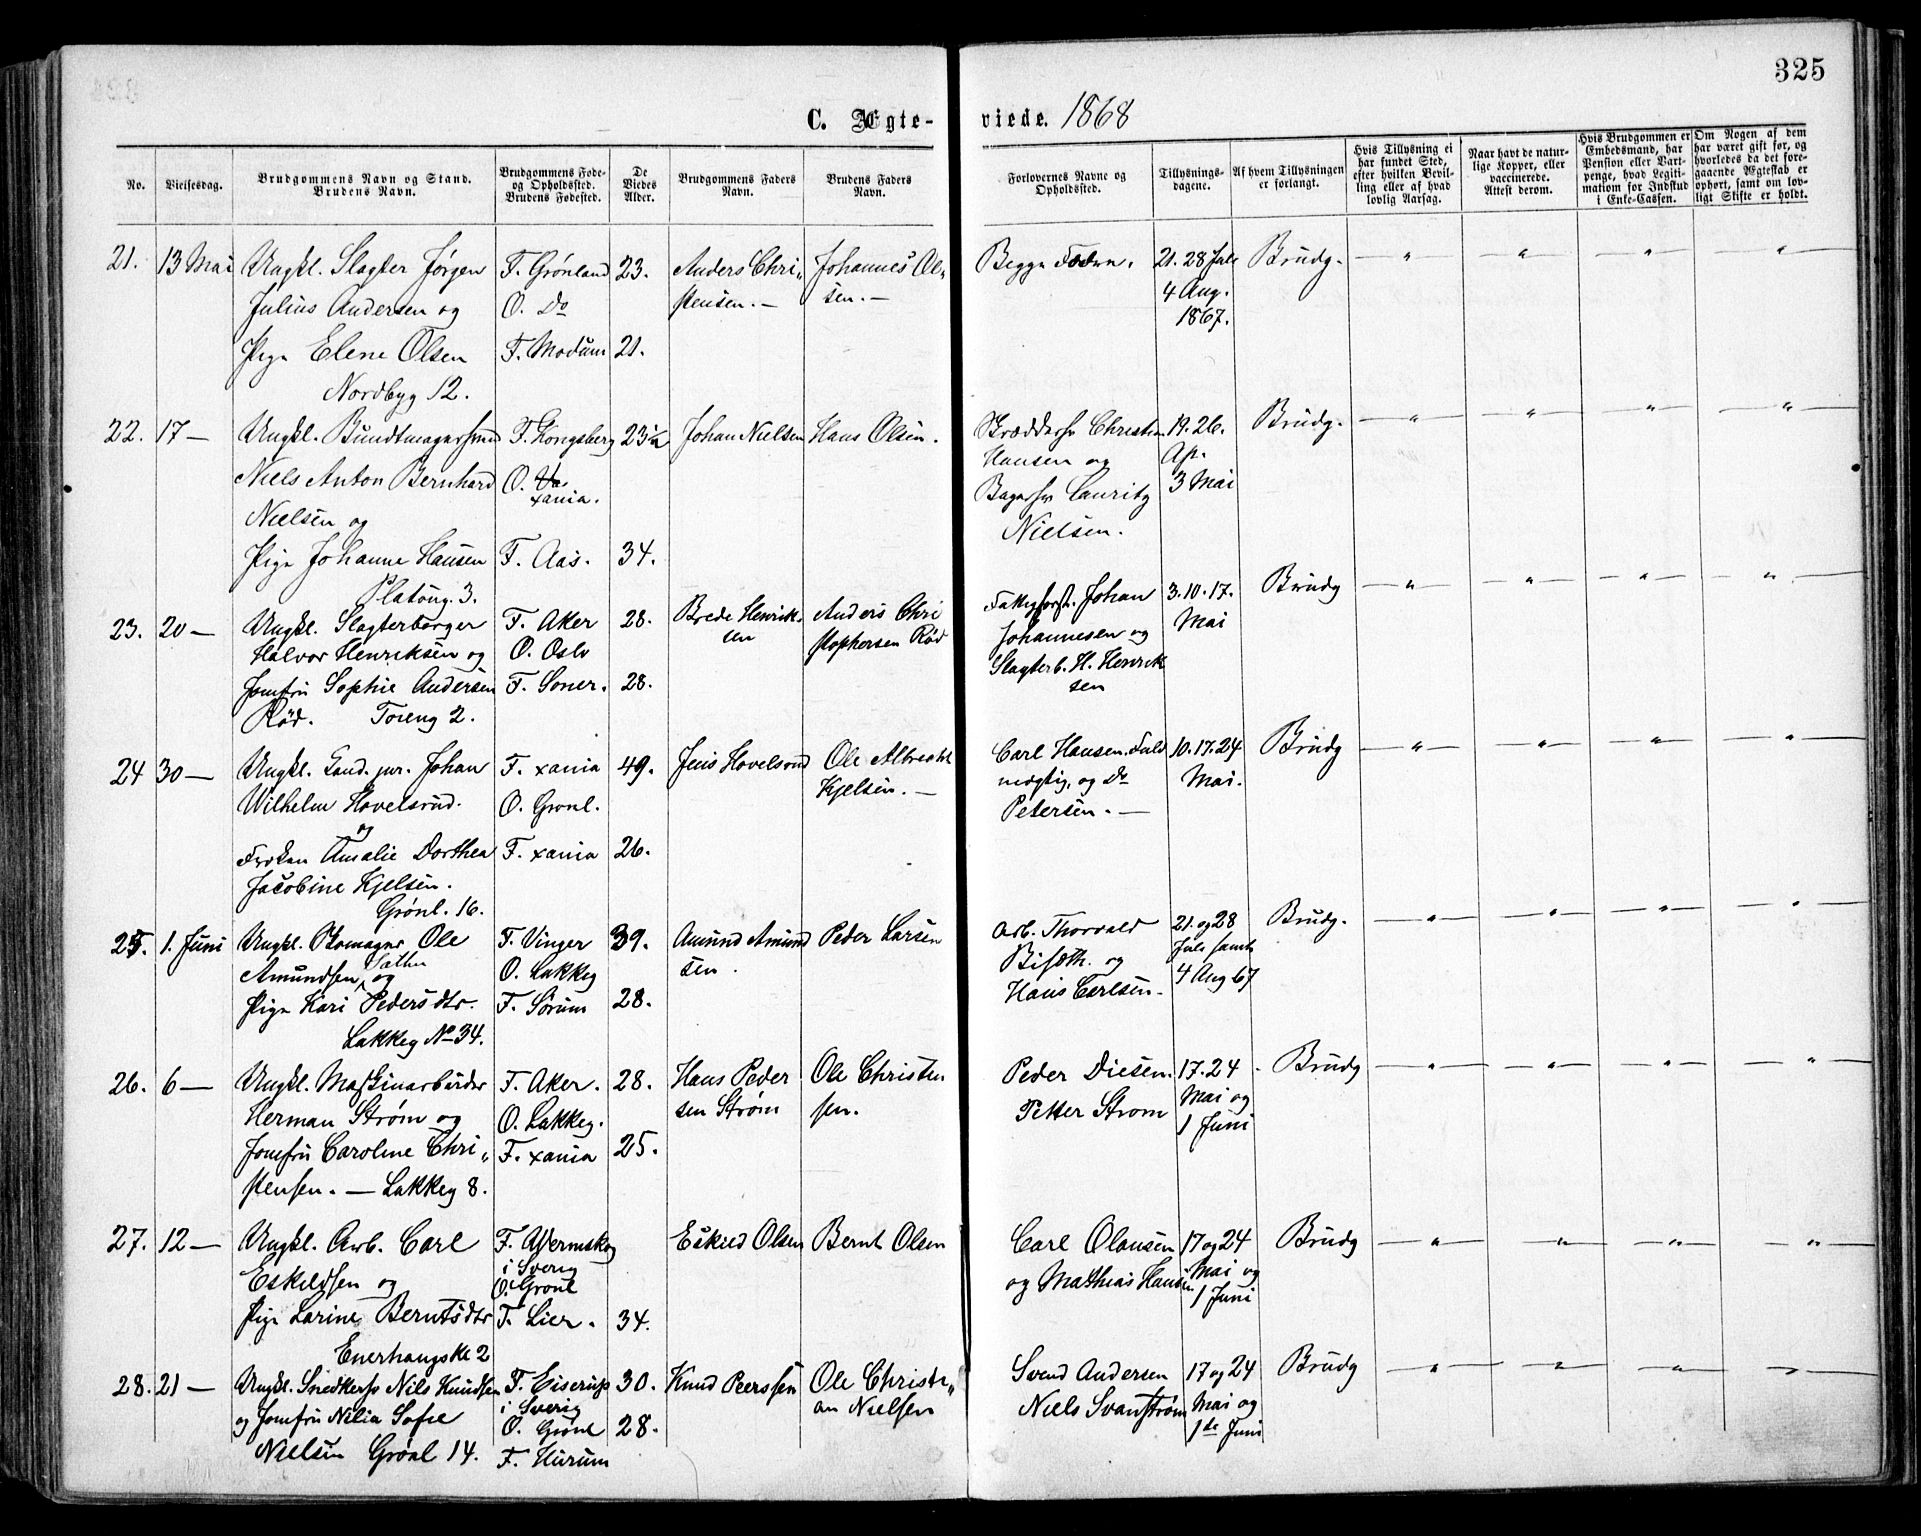 325
C. Ægte-
viede. 1868
No.
Vielsesdag.
Brudgommens Navn og Stand.
Brudens Navn.
Brudgommens Føde-
og Opholdssted.
Brudens Fødested.
De
Viedes
Alder.
Brudgommens Faders
Navn.
Brudens Faders
Navn.
Forlovernes Navne og
Opholdssted.
Tillysnings-
dagene.
Af hvem Tillysningen
er forlangt.
Hvis Tillysning ei
har fundet Sted,
efter hvilken Bevil-
ling eller af hvad
lovlig Aarsag.
Naar havt de natur-
lige Kopper, eller
vaccinerede.
Attest derom.
Hvis Brudgommen er
Embedsmand, har
Pension eller Vart-
penge, hvad Legiti-
mation for Indskud
i Enke-Cassen.
Om Nogen af dem
har været gift før, og
hvorledes da det fore-
gaaende Ægteskab er
ophørt, samt om lov-
ligt Skifte er holdt.
21. 13 Mai
Ungkl. Slagter Jørgen
Julius Andersen og
Pige Elene Olsen
Nordbyg 12.
F. Grønland
O. Do
F. Modum
23.
21.
Anders Chri-
stensen. —
Johannes Ol-
sen. —
Begge Fædre.
21. 28 Juli
4 Aug.
1867.
Brudg.
22. 17 —
Ungkl. Bundtmagersvend
Niels Anton Bernhard
Nielsen og
Pige Johanne Hansen
Platoug. 3.
F. Kongsberg
O.
xania.
F. Aas.
23½
34.
Johan Nielsen
Hans Olsen.
Skrædersv Christian
Hansen og
Bagersv Lauritz
Nielsen.
19. 26.
Ap.
3 Mai
Brudg.
23. 20 —
Ungkl. Slagterborger
Halvor Henriksen og
Jomfru Sophie Andersen
Rød. Toieng 2.
F. Aker
O. Oslo
F. Soner.
28.
28.
Brede Henrik-
sen
Anders Chri
stophersen Rød
Johan
Johannesen og
Slagterb. H. Henrik
sen
3. 10. 17.
Mai
Brudg
24 30 —
Ungkl. Cand. jur. Johan
Wilhelm Hovelsrud.
og
Frøken Amalie Dorthea
Jacobine Kjelsen.
Grønl. 16.
F. xania
O. Grønl.
F. xania
49.
26.
Jens Hovelsrud
Ole Albrecht
Kjelsen. —
Carl Hansen. Fuld
mægtig, og Do
Petersen. —
10. 17. 24
Mai.
Brudg
25. 1. Juni
Ungkl. Skomager Ole
Amundsen Sæther og
Pige Kari Pedersdtr.
Lakkeg No 34.
F. Vinger
O. Lakkeg
F. Sørum
39.
28.
Amund Amund
sen.
Peder Larsen
Arb. Thorvald
og
Hans Carlsen.
21. og 28
Juli samt
4 Aug 67
Brudg.
26. 6 —
Ungkl. Maskinarbeider
Herman Strøm og
Jomfru Caroline Chri-
stensen. — Lakkeg 8.
F. Aker.
O. Lakkeg.
F. xania
28.
25.
Hans Peder
sen Strøm
Ole Christen
sen.
Peder Diesen.
Petter Strøm
17. 24
Mai og
1 Juni
Brudg
27. 12 —
Ungkl. Arb. Carl
Eskildsen og
Pige Larine Berntsdtr
Enerhaugskl 2
F. Wermskog
i Sverig
O. Grønl
F. Lier.
34.
Eskild Olsen
Bernt Olsen
Carl Olausen
og Mathias Hansen
17 og 24
Mai og
1 Juni
Brudg
28. 21 —
Ungkl. Snedkersv Nils Knudsen
og Jomfru Nilia Sofie
Nielsen Grønl 14.
F. Eiserup
i Sverig
O. Grønl
F. Hurum
30.
28.
Knud Peerssen
Ole Christi-
an Nielsen
Svend Andersen
Niels Svanstrøm
17 og 24
Mai og
1de Juni
Brudg